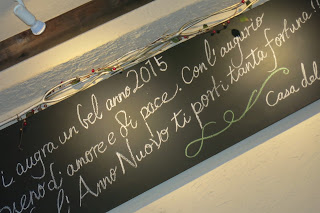 i augra un bel anno 2015
pieno di amore e di pace. Con l'augurio
l'Anno Nuovo ti porti tanta fortuna!!
Casa del